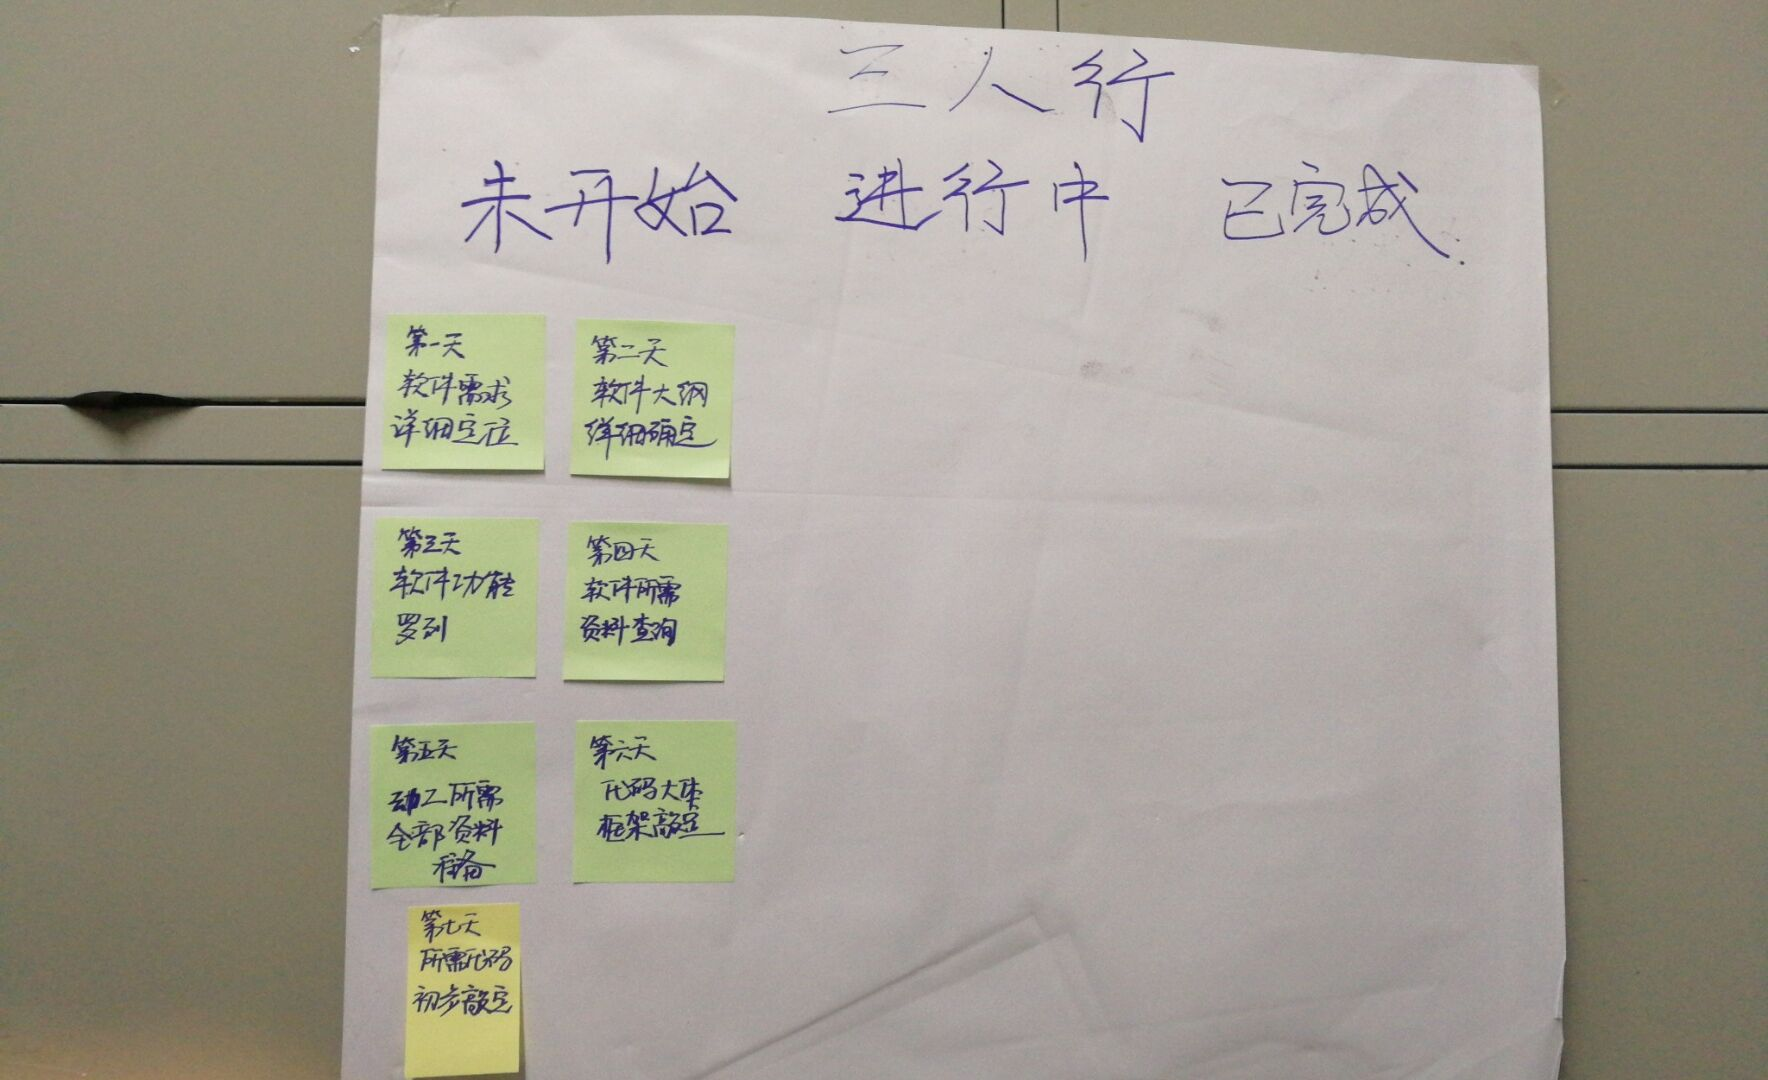 三人行
未开始 进行中 已完成.
第一天
软件需求
详细定位
第二天
软件大纲
详细确定
第三天
软件功能
罗列
第四天
软件所需
资料查询
第五天
动工所需
全部资料
准备
第六天
代码大类
框架敲定
第七天
所需代码
初步敲定